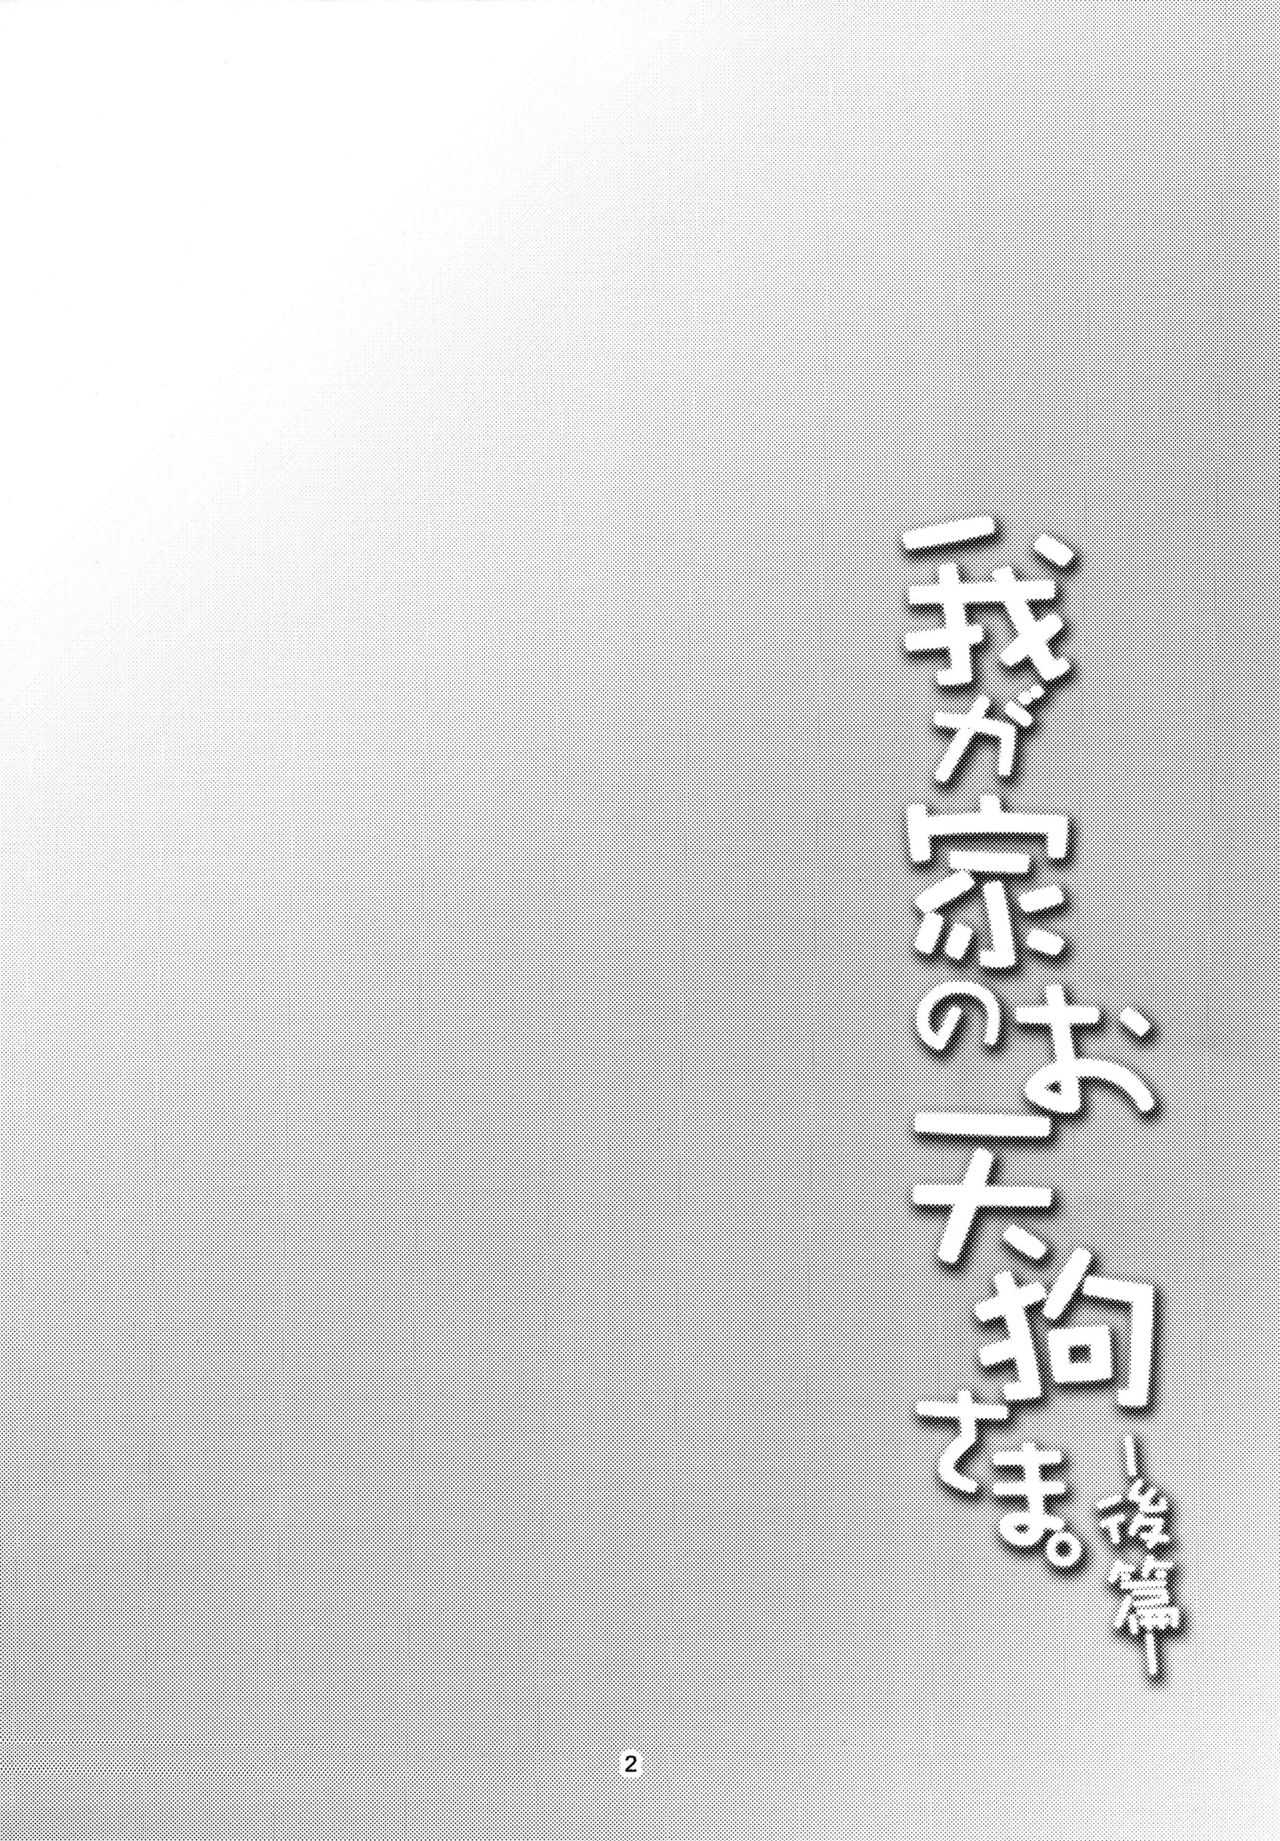 我が家のお天狗さま。
-後篇-
2